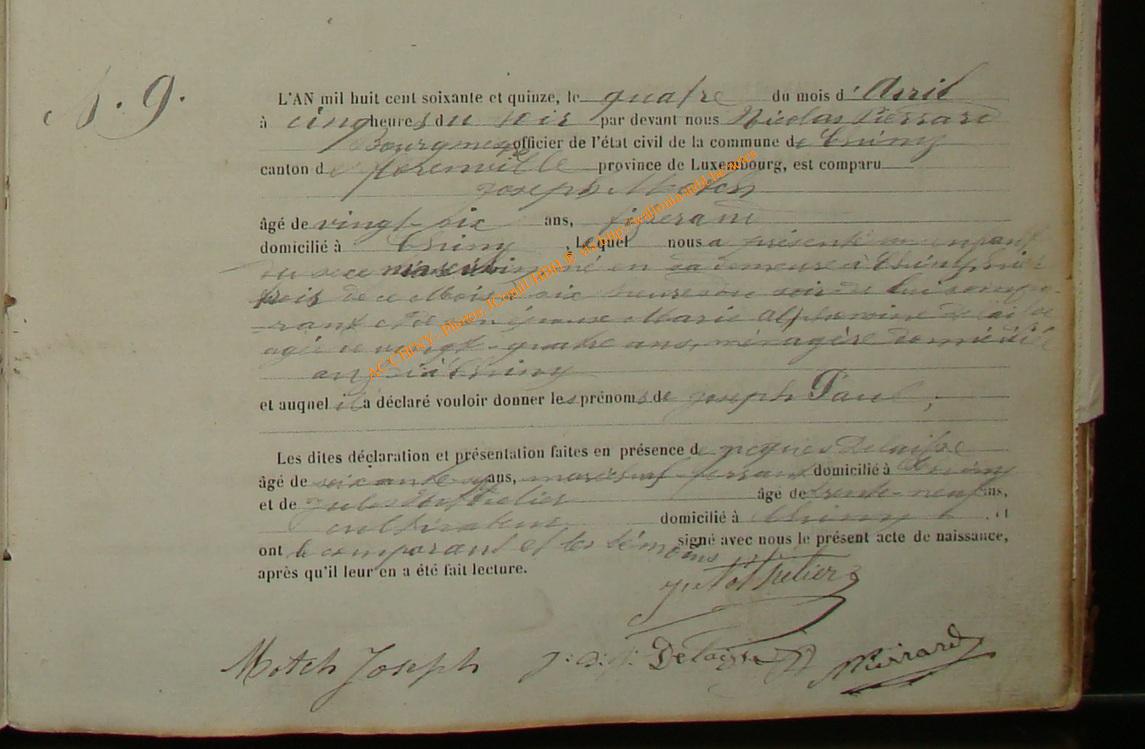 N. 9.
L'AN mil huit cent soixante et quinze, le quatre du mois d' Avril
à cinq heures du soir par devant nous Nicolas Pierrard
Bourgmestre officier de l'état civil de la commune de Chiny
canton de florenville province de Luxembourg, est comparu
Joseph Motch
âgé de vingt six ans, tisserand
domicilié à Chiny, lequel nous a présenté un enfant
du sexe masculin né en sa demeure à Chiny
trois de ce mois à six heures du soir de lui compa-
rant et de son épouse Marie Delaisse
agée de vingt-quatre ans, ménagère domiciliée
aussi à Chiny
et auquel il a déclaré vouloir donner les prénoms de joseph Paul,
Les dites déclaration et présentation faites en présence de jacques Delaisse
âgé de soixante ans, maréchal ferrant domicilié à Chiny
et de jules âgé de trente-neuf ans,
cultivateur domicilié à Chiny et
ont le comparant et les témoins signé avec nous le présent acte de naissance,
après qu'il leur en a été fait lecture.
Motch Joseph
Delaisse
N Pierrard